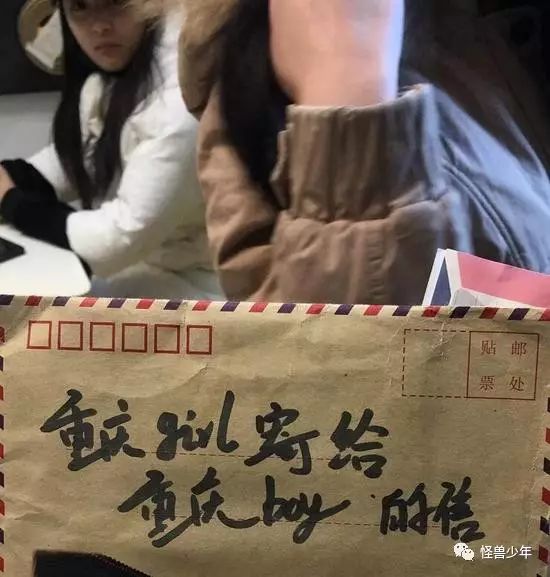 贴邮
票处
重庆girl寄给
重庆boy的信
怪兽少年